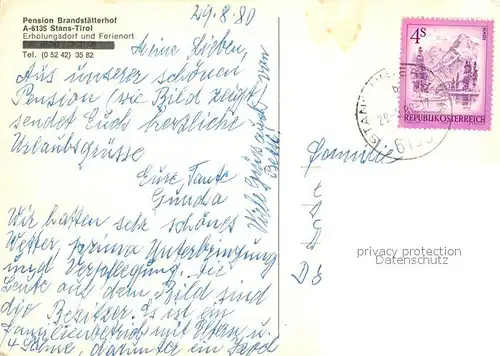 Pension Brandstätterhof
A-6135 Stans-Tirol
Erholungsdorf und Ferienort
Tel. (0 52 42) 35 82
29.8.80
Meine Lieben,
Aus unserer schönen
Pension (wie Bild zeigt)
sendet Euch herzliche
Urlaubsgrüsse
Eure Tante
Gunda
Wir hatten sehr schönes
Wetter prima Unterbringung
und Verpflegung. Die
Leute auf dem Bild sind
die Besitzer. Es ist ein
Familienbetrieb mit Eltern u.
4 Söhne, darunter ein
Viele Grüsse auch von
4S
REPUBLIK ÖSTERREICH
STANS
6135
Familie
privacy protection
Datenschutz